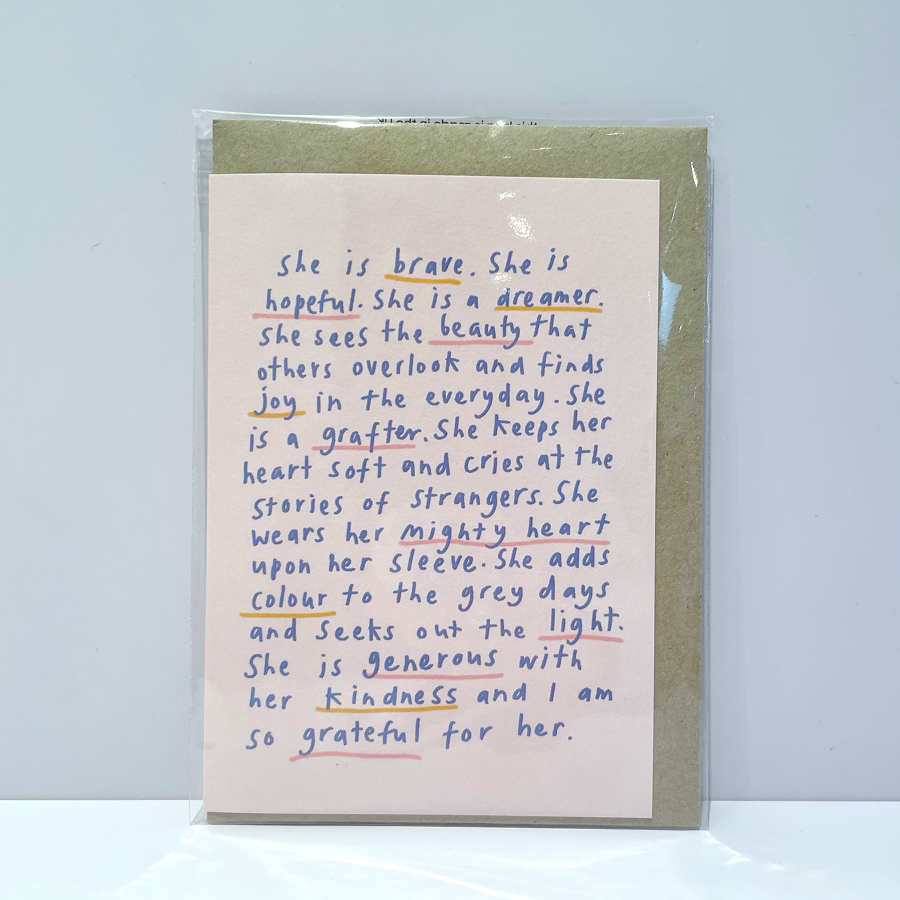 She is brave. She is
hopeful. She is a dreamer.
She sees the beauty that
others overlook and finds
joy in the everyday. She
is a grafter. She keeps her
heart soft and cries at the
stories of strangers. She
wears her mighty heart
upon her sleeve. She adds
colour to the grey days
and seeks out the light.
She is generous with
her kindness and I am
so grateful for her.